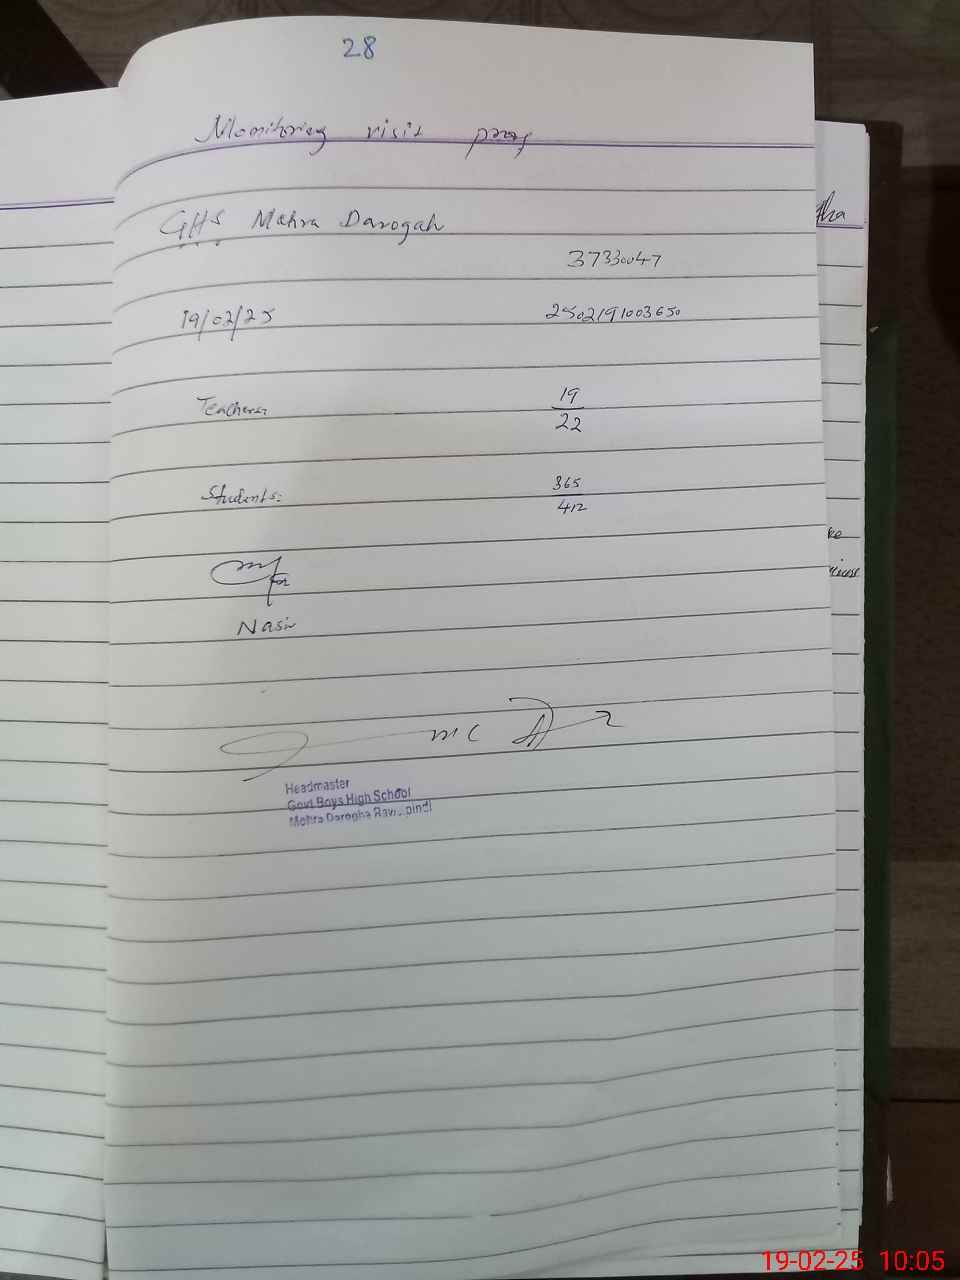 28
Monitoring visit proof
GHS Mohra Darogah
37330047
19/02/25 2502191003650
Teachers: 19/22
Students: 365/412
Nasir
Headmaster
Govt Boys High School
Mohra Darogha
tha
19-02-25 10:05